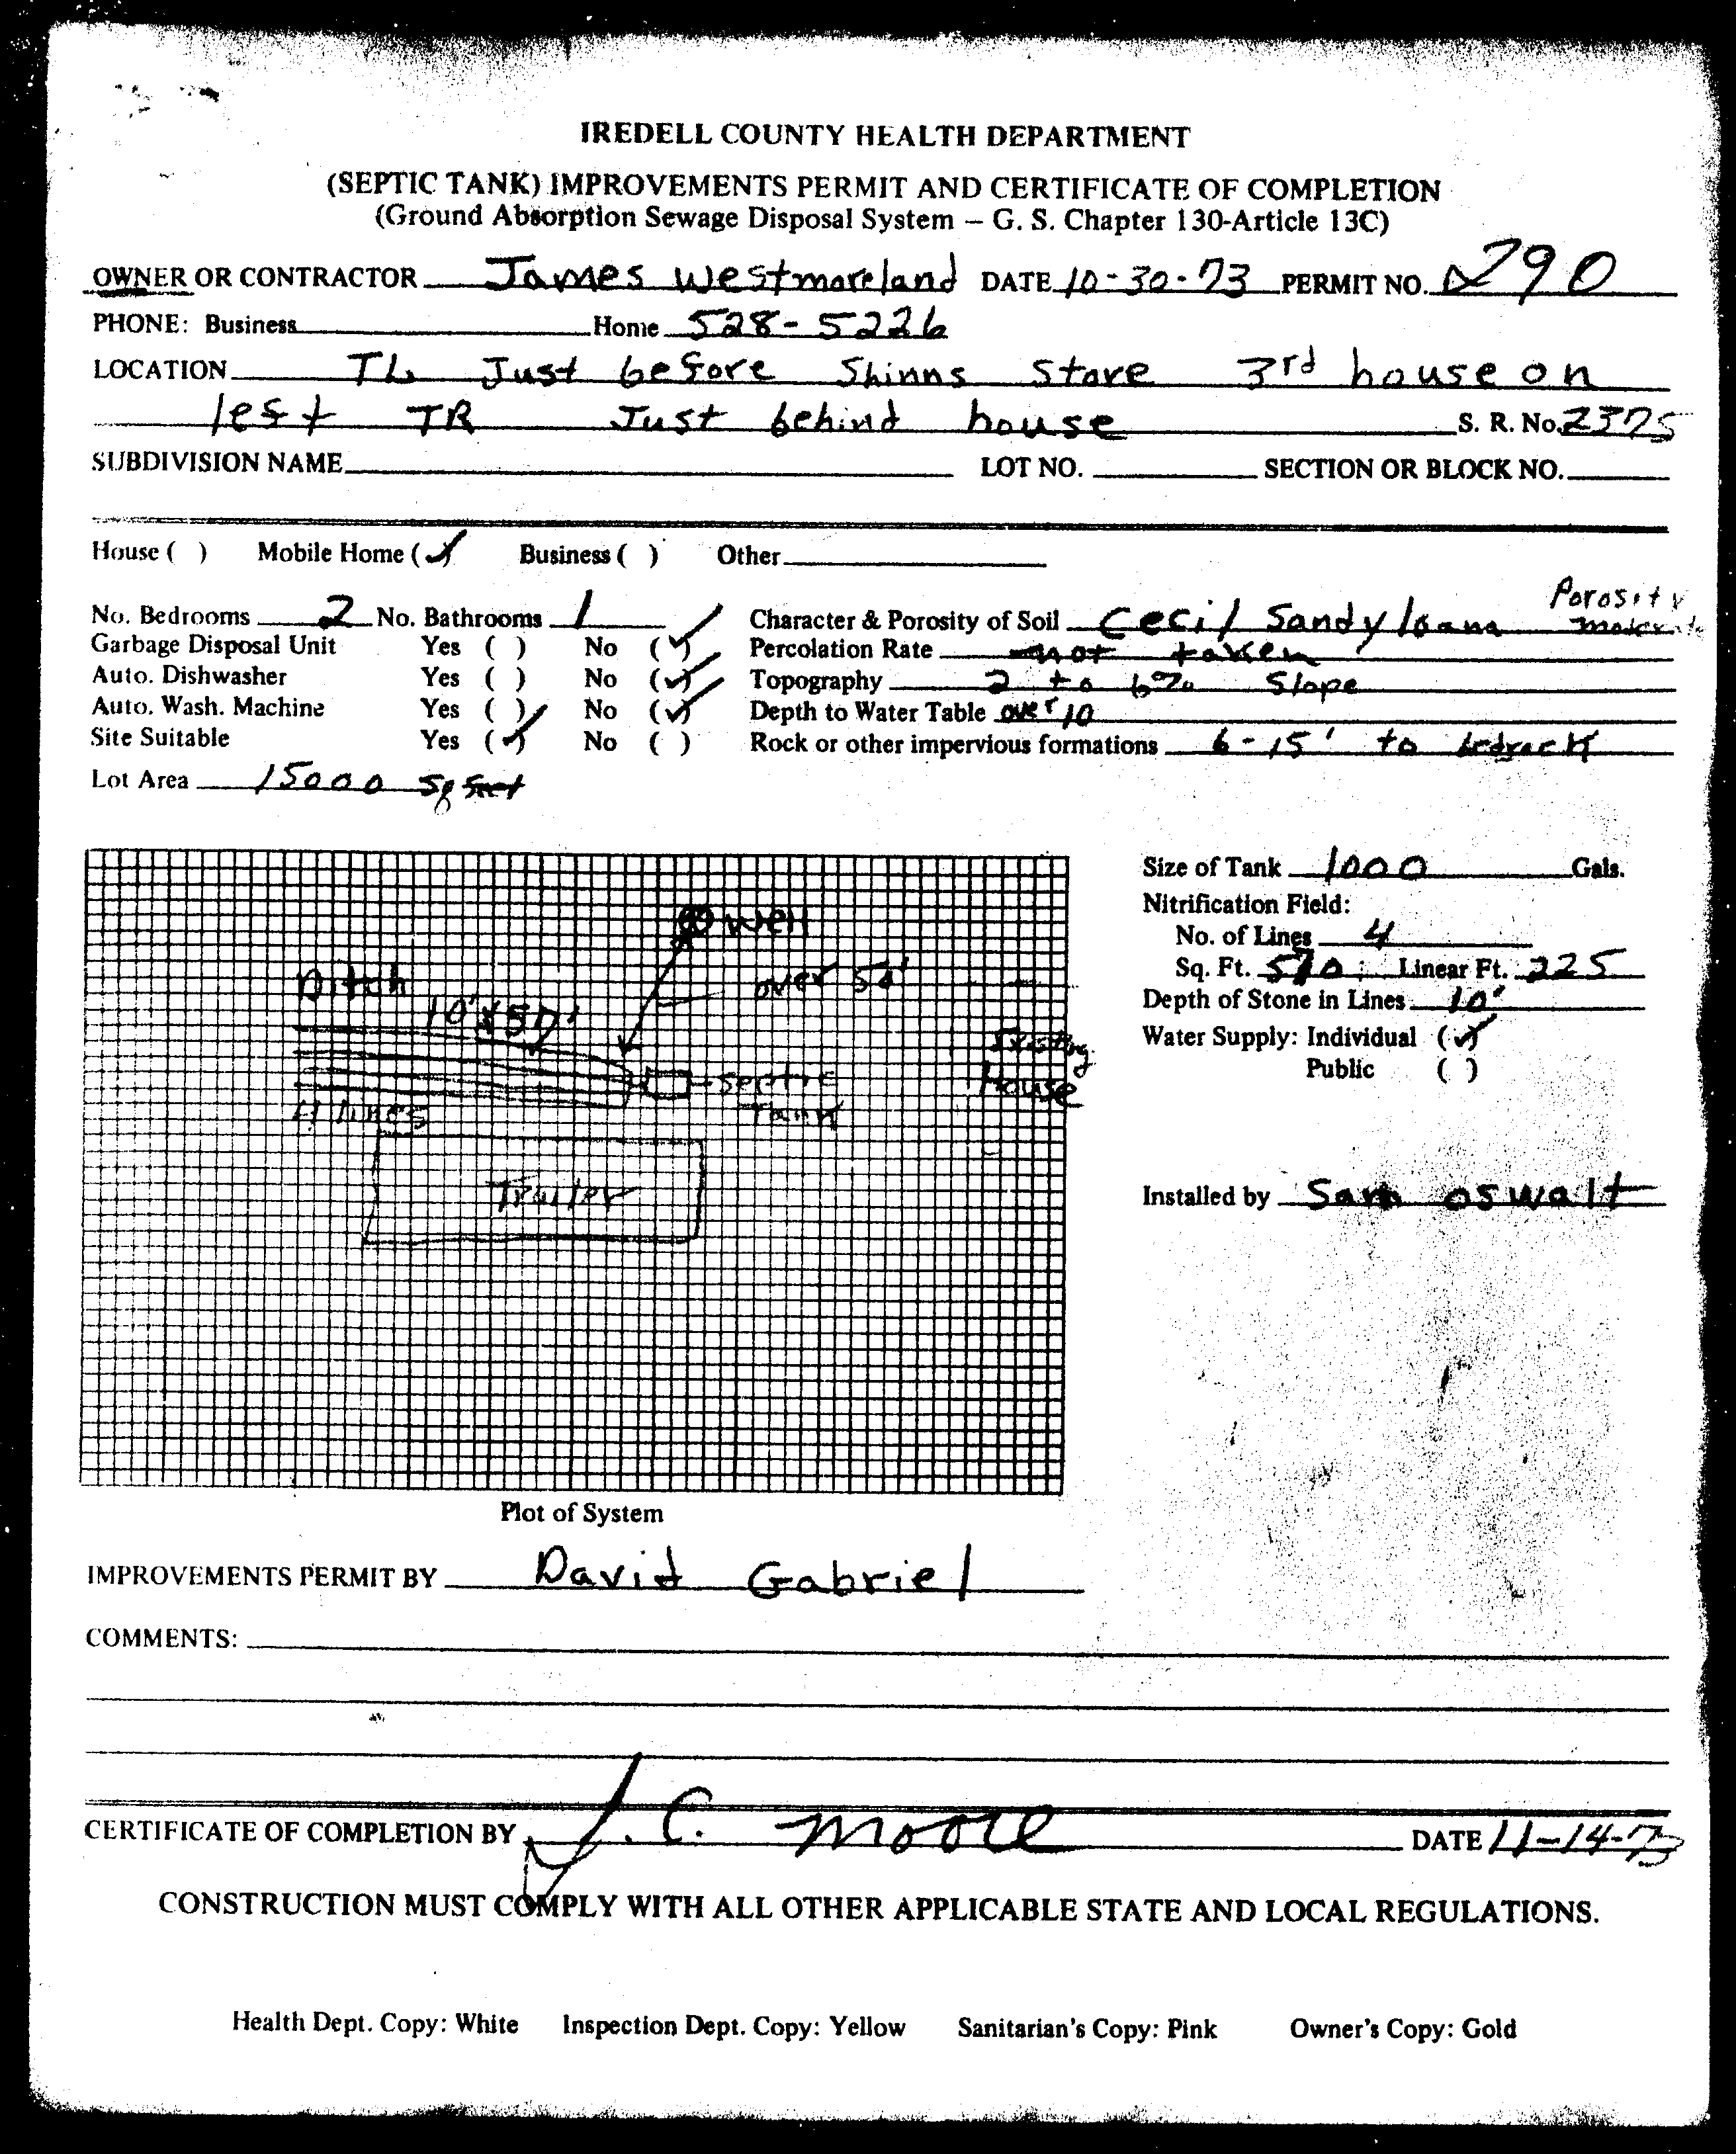 IREDELL COUNTY HEALTH DEPARTMENT
(SEPTIC TANK) IMPROVEMENTS PERMIT AND CERTIFICATE OF COMPLETION
(Ground Absorption Sewage Disposal System – G. S. Chapter 130-Article 13C)
OWNER OR CONTRACTOR James Westmoreland DATE 10-30-73 PERMIT NO. 290
PHONE: Business Home 528-5226
LOCATION TL Just before Shinns Store 3rd house on
left TR Just behind house S. R. No. 2375
SUBDIVISION NAME LOT NO. SECTION OR BLOCK NO.
House ( ) Mobile Home (✓) Business ( ) Other
Porosity
No. Bedrooms 2 No. Bathrooms 1 Character & Porosity of Soil Cecil Sandy loam moderate
Garbage Disposal Unit Yes ( ) No (✓) Percolation Rate not taken
Auto. Dishwasher Yes ( ) No (✓) Topography 2 to 6% Slope
Auto. Wash. Machine Yes ( ) No (✓) Depth to Water Table over 10
Site Suitable Yes (✓) No ( ) Rock or other impervious formations 6-15' to bedrock
Lot Area 15000 Sq feet
Size of Tank 1000 Gals.
Nitrification Field:
No. of Lines 4
Sq. Ft. Linear Ft. 225
Depth of Stone in Lines 10"
Water Supply: Individual (✓)
Public ( )
Installed by Sam Oswalt
well
Ditch
over 50'
10' x 50'
Existing
House
Septic
Tank
4 lines
Trailer
Plot of System
IMPROVEMENTS PERMIT BY David Gabriel
COMMENTS:
CERTIFICATE OF COMPLETION BY J. C. Moore DATE 11-14-73
CONSTRUCTION MUST COMPLY WITH ALL OTHER APPLICABLE STATE AND LOCAL REGULATIONS.
Health Dept. Copy: White Inspection Dept. Copy: Yellow Sanitarian's Copy: Pink Owner's Copy: Gold